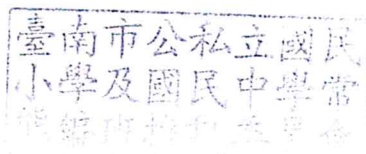 臺南市公私立國民
小學及國民中學常
態編班